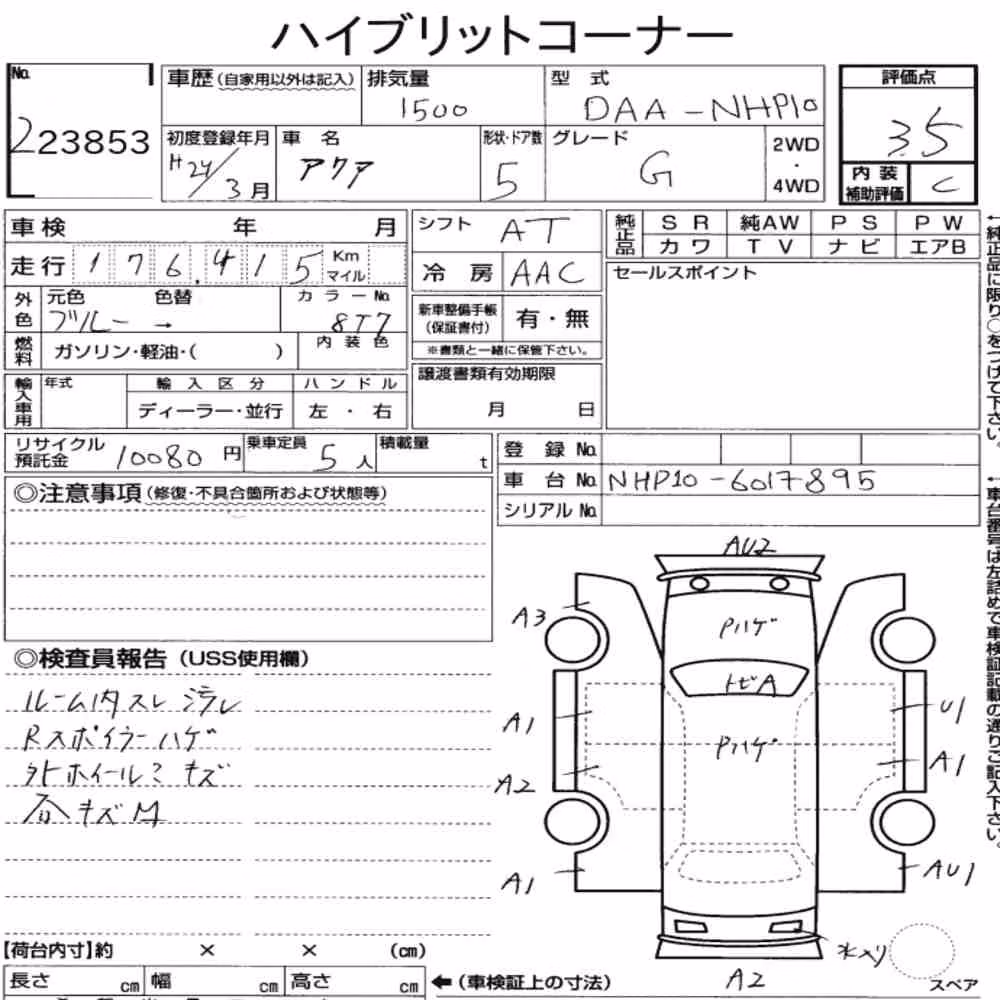 ハイブリットコーナー
No. 223853
車歴（自家用以外は記入）
排気量 1500
型式 DAA-NHP10
評価点 3.5
初度登録年月 H24/3月
車名 アクア
形状・ドア数 5
グレード G
2WD・4WD
内装補助評価 C
車検 年 月
シフト AT
純正品 SR 純AW PS PW
カワ TV ナビ エアB
走行 176,415 Km マイル
冷房 AAC
セールスポイント
外色 元色 ブルー 色替 → カラーNo. 8T7
新車整備手帳（保証書付） 有・無
※書類と一緒に保管下さい。
燃料 ガソリン・軽油・（ ） 内装色
輸入車用 年式 輸入区分 ハンドル
ディーラー・並行 左・右
譲渡書類有効期限
月 日
リサイクル預託金 10080円
乗車定員 5人
積載量 t
登録No.
車台No. NHP10-6017895
シリアルNo.
◎注意事項（修復・不具合箇所および状態等）
◎検査員報告（USS使用欄）
ルーム内スレ汚レ
Rスポイラーハゲ
外ホイールミキズ
キズM
AU2
A3
Pハゲ
トビA
A1
U1
Pハゲ
A2
A1
A1
AU1
水入り
A2
スペア
【荷台内寸】約 × × （cm）
長さ cm 幅 cm 高さ cm
←（車検証上の寸法）
←純正品に限り○をつけて下さい。
←車台番号は左詰めで車検証記載の通りご記入下さい。